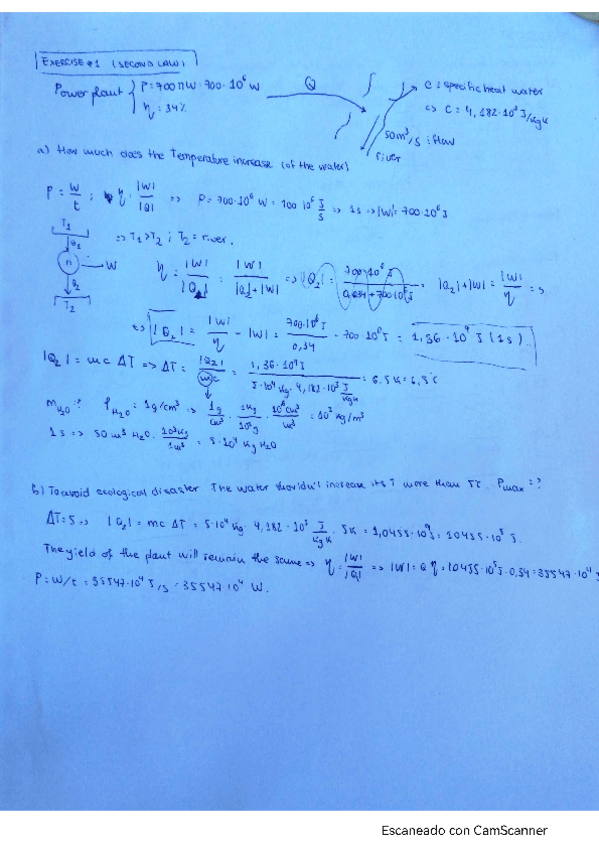 EXERCISE #1 (SECOND LAW)
Power plant { P = 700 MW = 700·10⁶ W
η = 34%
Q
C: specific heat water
⇒ C = 4,182·10³ J/kgK
50 m³/s : flow
river
a) How much does the Temperature increase (of the water)
P = W/t ; η = |W|/|Q| ⇒ P = 700·10⁶ W = 700·10⁶ J/s ⇒ 1s ⇒ |W| = 700·10⁶ J
T₁
⇒ T₁ > T₂ ; T₂ = river.
Q₁
W
Q₂
T₂
η = |W|/|Q₁| = |W|/(|Q₂|+|W|) ⇒ |Q₂| = 700·10⁶ J = |Q₂|+|W| = |W|/η ⇒
⇒ |Q₂| = |W|/η - |W| = 700·10⁶ J/0,34 - 700·10⁶ J = 1,36·10⁹ J (1s)
|Q₂| = mc ΔT ⇒ ΔT = |Q₂|/mc = 1,36·10⁹ J/(5·10⁴ kg · 4,182·10³ J/kgK) = 6,5 K = 6,5°C
m H₂O? ρ H₂O = 1g/cm³ ⇒ 1g/cm³ · 1kg/10³g · 10⁶cm³/m³ = 10³ kg/m³
1s ⇒ 50 m³ H₂O · 10³kg/1m³ = 5·10⁴ kg H₂O
b) To avoid ecological disaster The water shouldn't increase its T more than 5°C. Pmax = ?
ΔT = 5 ⇒ |Q₂| = mc ΔT = 5·10⁴ kg · 4,182·10³ J/kgK · 5K = 1,0455·10⁹ J = 10455·10⁵ J.
The yield of the plant will remain the same ⇒ η = |W|/|Q₁| ⇒ |W| = Q η = 10455·10⁵ J·0,34 = 35547·10⁴ J
P = W/t = 35547·10⁴ J/s = 35547·10⁴ W.
Escaneado con CamScanner